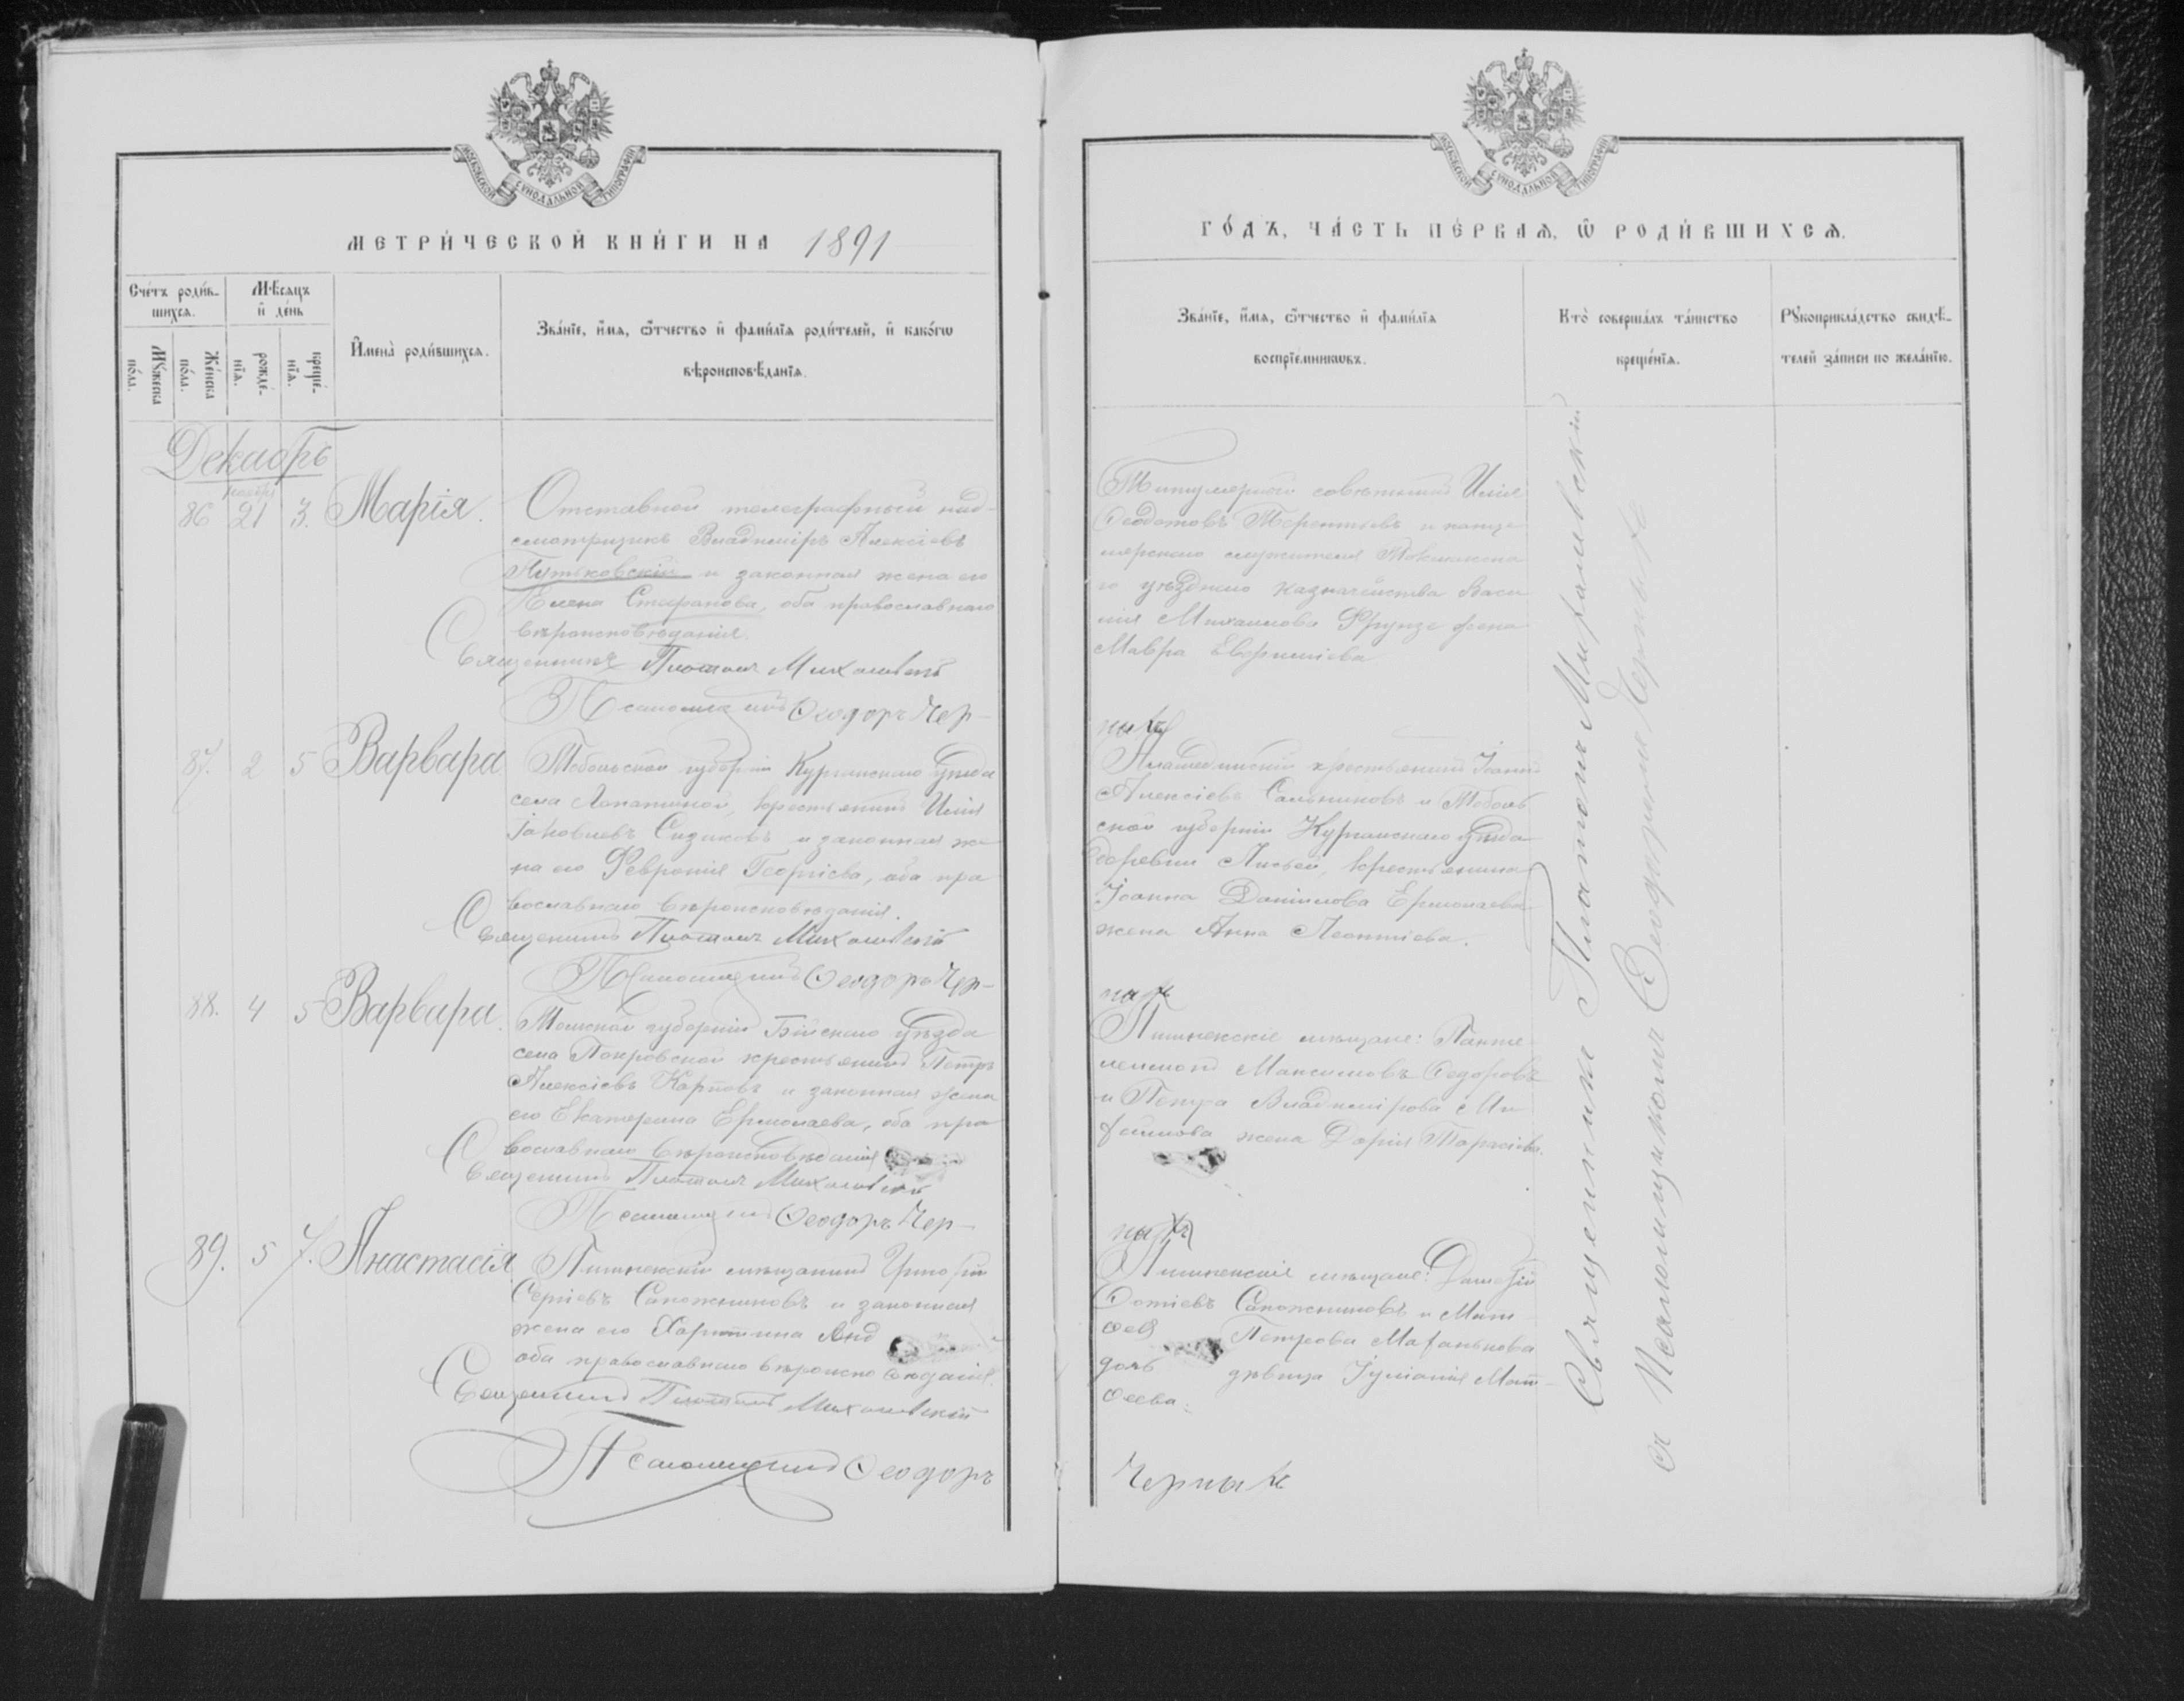 МОСКОВСКОЙ СѴНОДАЛЬНОЙ ТИПОГРАФІИ
МЕТРИ́ЧЕСКОЙ КНИ́ГИ НА 1891
Сче́тъ роди́в-
шихсѧ.
Мꙋ́жеска
по́ла.
Же́нска
по́ла.
Мѣ́сѧцъ
и҆ де́нь
рожде́-
нїѧ.
креще́-
нїѧ.
И҆мена̀ роди́вшихсѧ.
Зва́нїе, и҆́мѧ, ѻ҆́тчество и҆ фами́лїѧ роди́телей, и҆ како́гѡ
вѣроисповѣ́данїѧ.
Декабрь
ноября
86 21 3. Марія.
Отставной телеграфный над-
смотрщикъ Владиміръ Алексіевъ
Путьковскій и законная жена его
Елена Стефанова, оба православнаго
вѣроисповѣданія.
Священникъ Платонъ Михаловскій
Псаломщикъ Ѳеодоръ Чер-
87. 2 5 Варвара
Тобольской губерніи Курганскаго уѣзда
села Лопатиной, крестьянинъ Илія
Іаковлевъ Сизиковъ и законная же-
на его Февронія Георгіева, оба пра
вославнаго вѣроисповѣданія.
Священникъ Платонъ Михаловскій
Псаломщикъ Ѳеодоръ Чер-
88. 4 5 Варвара.
Томской губерніи Бійскаго уѣзда
села Покровской крестьянинъ Петръ
Алексіевъ Карповъ и законная жена
его Екатерина Ермолаева, оба пра
вославнаго вѣроисповѣданія
Священникъ Платонъ Михаловскій
Псаломщикъ Ѳеодоръ Чер-
89. 5 7. Анастасія
Пишпекскій мѣщанинъ
Сергіевъ Сапожниковъ и законная
жена его Харитина Анд
оба православнаго вѣроисповѣданія.
Священникъ Платонъ Михаловскій
Псаломщикъ Ѳеодоръ
МОСКОВСКОЙ СѴНОДАЛЬНОЙ ТИПОГРАФІИ
ГО́ДЪ, ЧА́СТЬ ПЕ́РВАѦ, Ѡ҆ РОДИ́ВШИХСѦ.
Зва́нїе, и҆́мѧ, ѻ҆́тчество и҆ фами́лїѧ
воспрїе́мникѡвъ.
Кто̀ соверша́лъ та́инство
креще́нїѧ.
Рꙋкоприкла́дство свидѣ́-
телей за́писи по жела́нїю.
Титулярный совѣтникъ Илія
Ѳеодотовъ Терентьевъ и канце
лярскаго служителя Токмакска
го уѣзднаго казначейства Васи
лія Михаилова Фрунзе жена
Мавра Евфиміева
ныхъ
крестьянинъ Іоаннъ
Алексіевъ Сальниковъ и Тоболь
ской губерніи Курганскаго уѣзда
деревни крестьянина
Іоанна Даніилова Ермолаева
жена Анна Леонтіева.
ныхъ
Пишпекскіе мѣщане: Панте
леимонъ Максимовъ Ѳедоровъ
и Петра Владимірова
жена Дарія
ныхъ
Пишпекскіе мѣщане:
Фотіевъ Сапожниковъ и Мат
ѳея Петрова
дочь дѣвица Іуліанія Мат-
ѳеева.
Черныхъ
Священникъ Платонъ Михаловскій
съ Псаломщикомъ Ѳеодоромъ Черныхъ